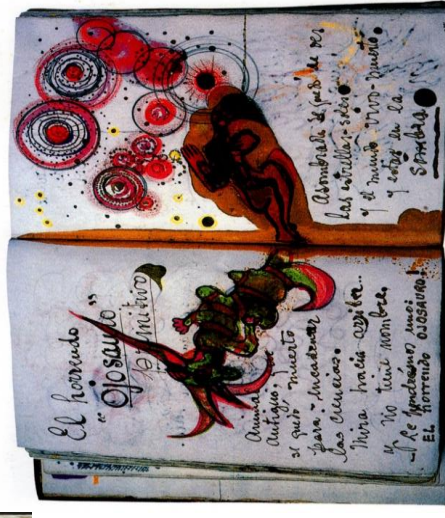 El horrendo
"Ojosauro"
primitivo
Animal
antiguo
se quedó muerto
para encadenar
las ciencias.
Mira hacia arriba..
y no tiene nombre.
– Le pondremos uno:
EL horrendo OJOSAURO!
Asombrada se quedó de ver
las estrellas-soles
y el mundo vivo-muerto
y estar en la
sombra